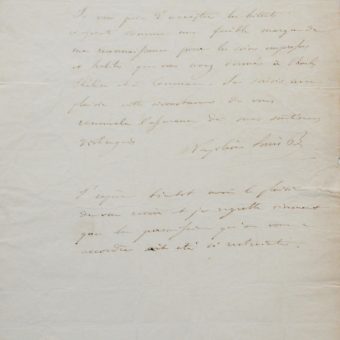 Je vous prie d'accepter les billets
comme une faible marque de
ma reconnaissance pour les soins empressés
et habiles que vous avez donnés à
Je saisis avec
plaisir cette circonstance de vous
renouveler l'assurance de mes sentiments
distingués
Napoléon Louis
J'espère bientôt avoir le plaisir
de vous revoir et je regrette vivement
que la permission qu'on vous a
accordée ait été si restreinte.